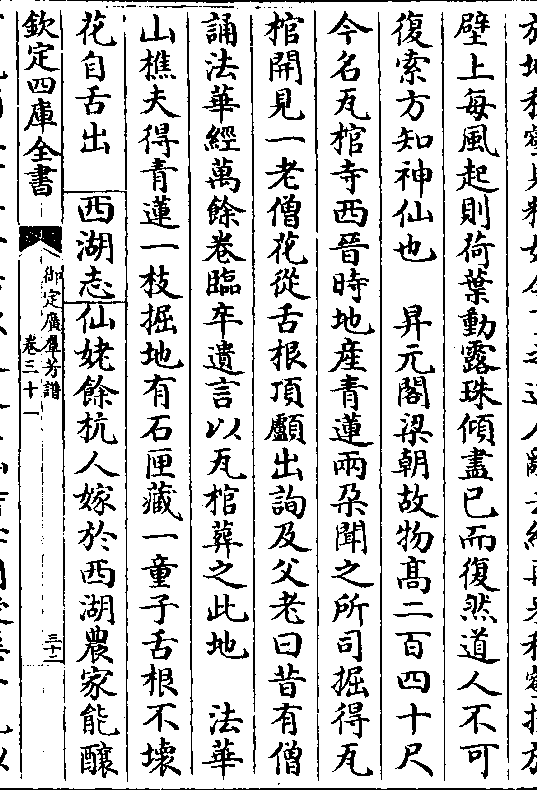 壁上每風起則荷葉動露珠傾盡已而復然道人不可
復索方知神仙也　昇元閣梁朝故物髙二百四十尺
今名瓦棺寺西晉時地産青蓮兩朶聞之所司掘得瓦
棺開見一老僧花從舌根頂顱出詢及父老曰昔有僧
誦法華經萬餘卷臨卒遺言以瓦棺葬之此地　法華
山樵夫得青蓮一枝掘地有石匣藏一童子舌根不壞
花自舌出　西湖志仙姥餘杭人嫁於西湖農家能釀
欽定四庫全書
御定廣羣芳譜
卷三十一
三十二